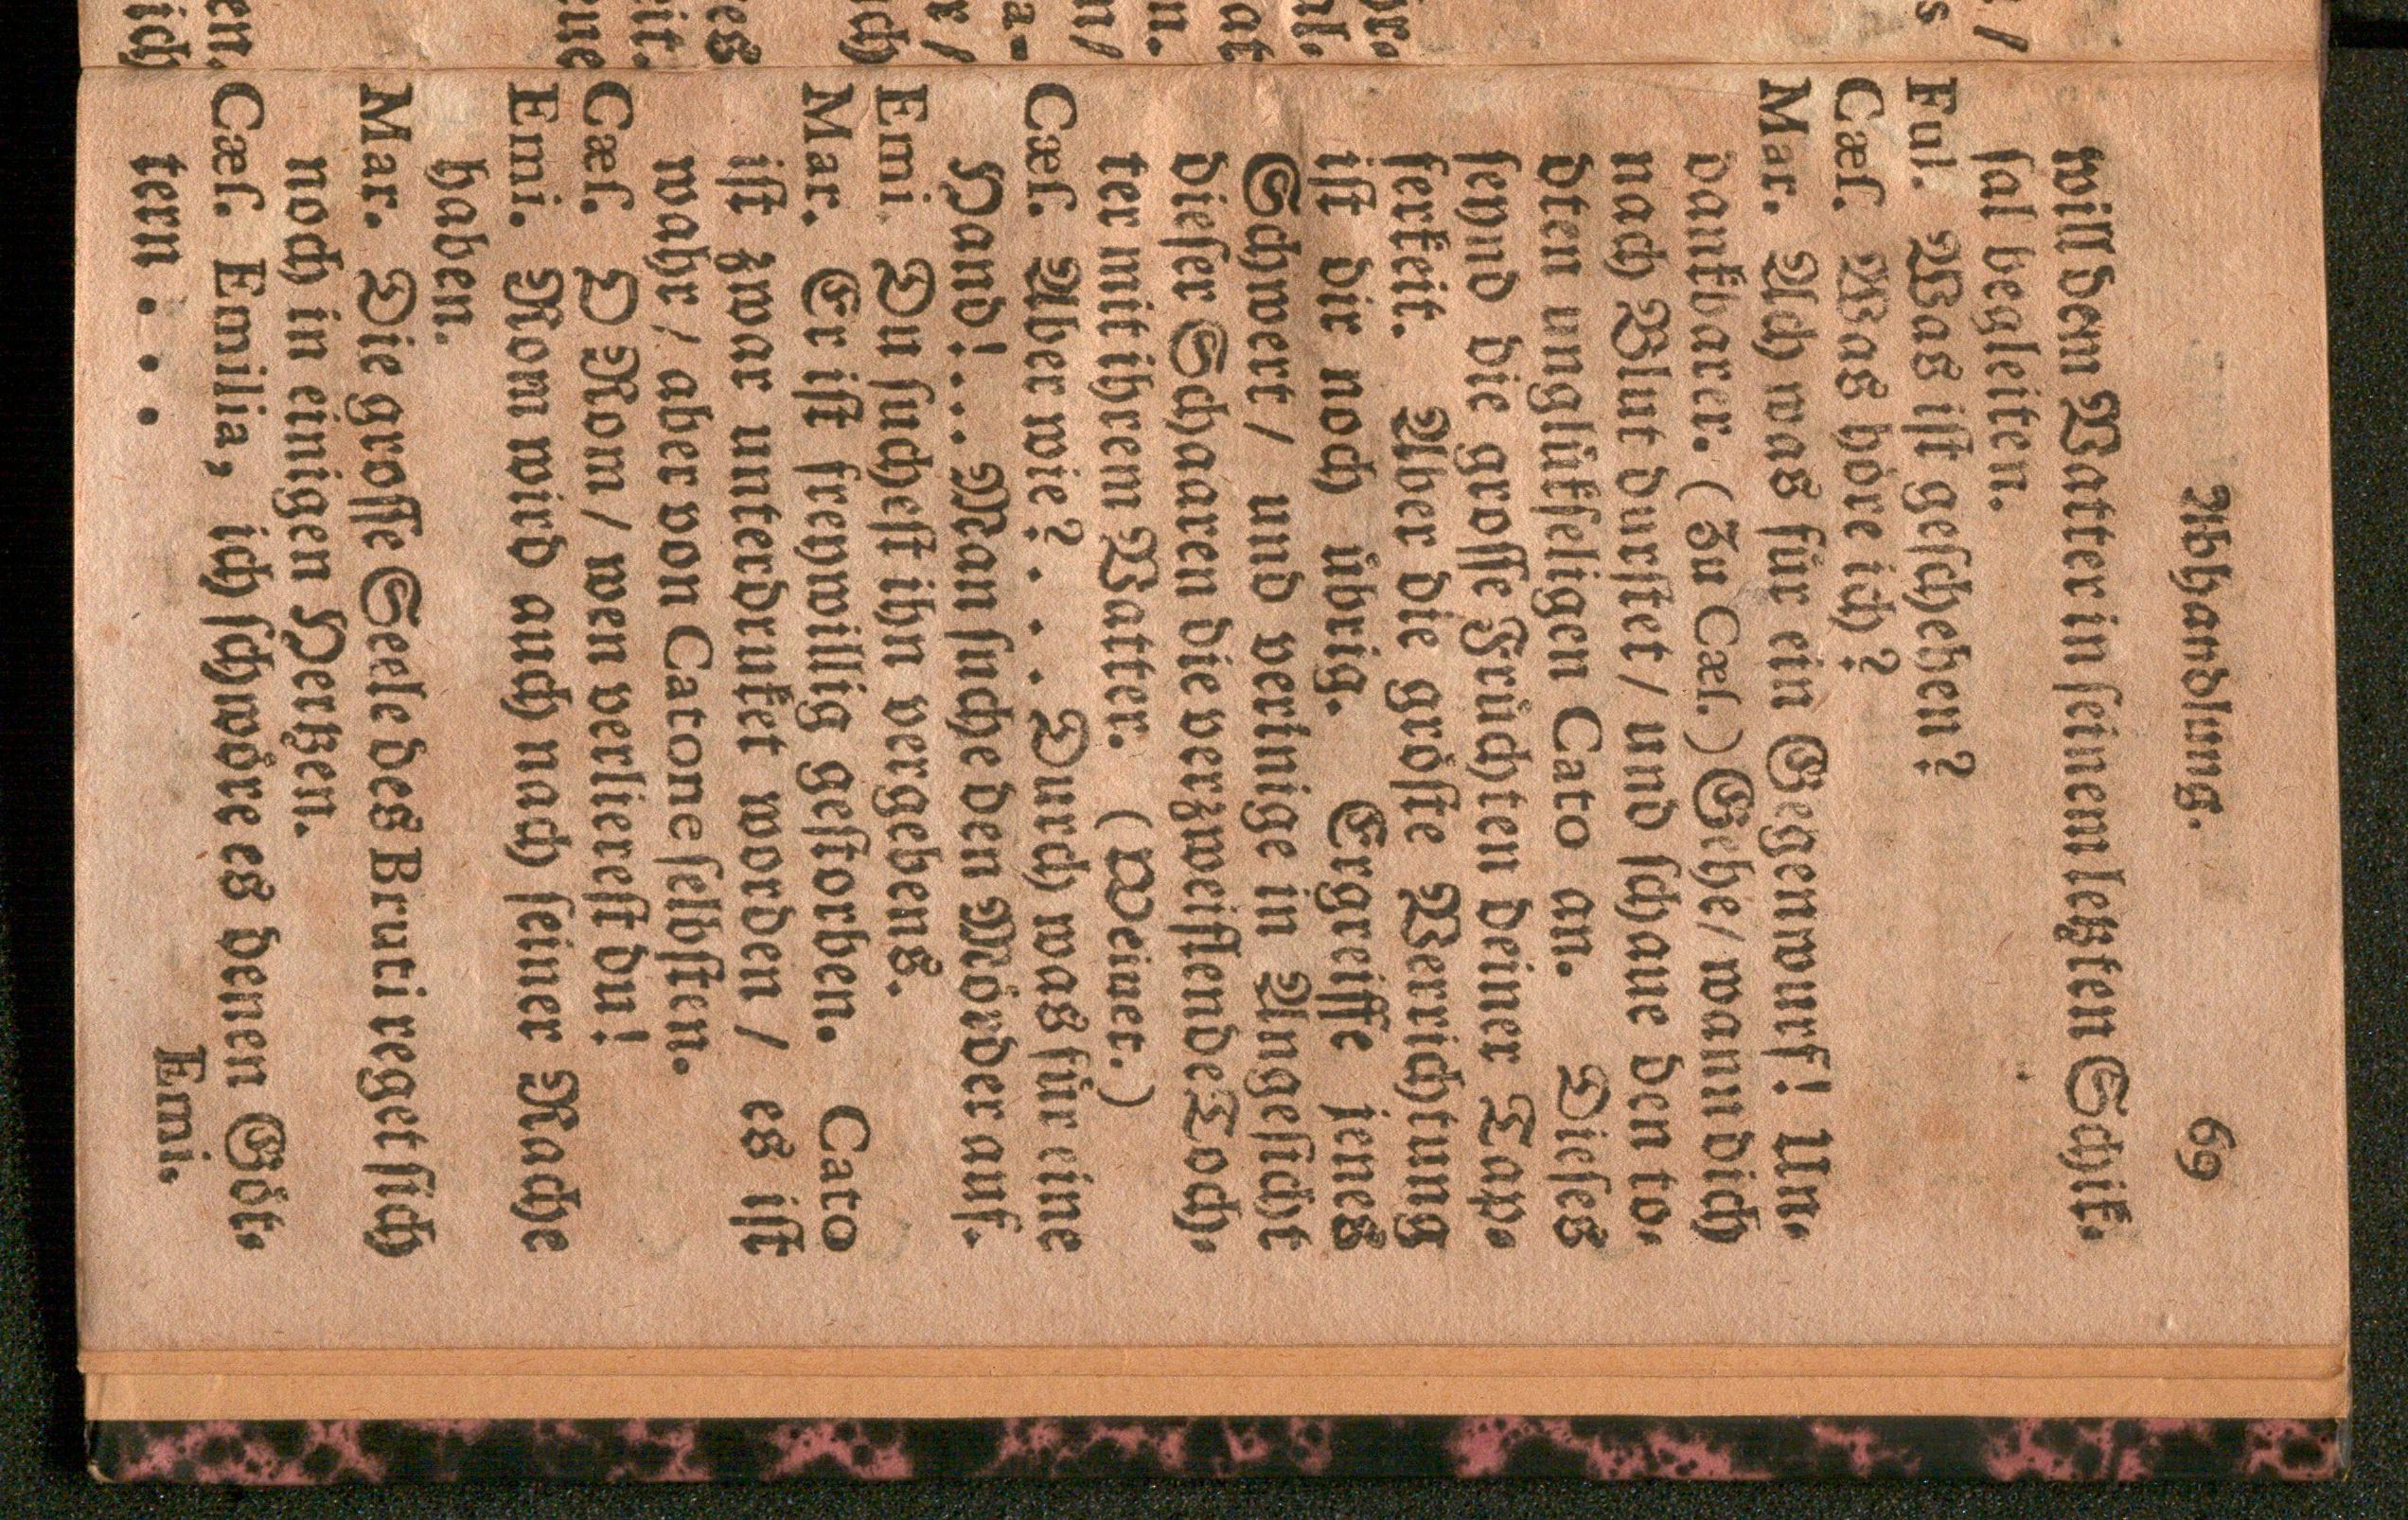 Abhandlung. 69
will dem Vatter in seinem letzten Schik-
sal begleiten.
Ful. Was ist geschehen?
Cæs. Was höre ich?
Mar. Ach was für ein Gegenwurf! Un-
dankbarer. (Zu Cæs.) Gehe/ wann dich
nach Blut durstet/ und schaue den to-
dten unglükseligen Cato an. Dieses
seynd die grosse Früchten deiner Tap-
ferkeit. Aber die gröste Verrichtung
ist dir noch übrig. Ergreiffe jenes
Schwert/ und vereinige in Angesicht
dieser Scharen die verzweiflende Toch-
ter mit ihrem Vatter. (Weinet.)
Cæs. Aber wie?.... Durch was für eine
Hand!... Man suche den Mörder auf.
Emi. Du suchest ihn vergebens.
Mar. Er ist freywillig gestorben. Cato
ist zwar unterdruket worden/ es ist
wahr/ aber von Catone selbsten.
Cæs. O Rom/ wen verlierest du!
Emi. Rom wird auch nach seiner Rache
haben.
Mar. Die grosse Seele des Bruti reget sich
noch in einigen Hertzen.
Cæs. Emilia, ich schwöre es denen Göt-
tern....
Emi.